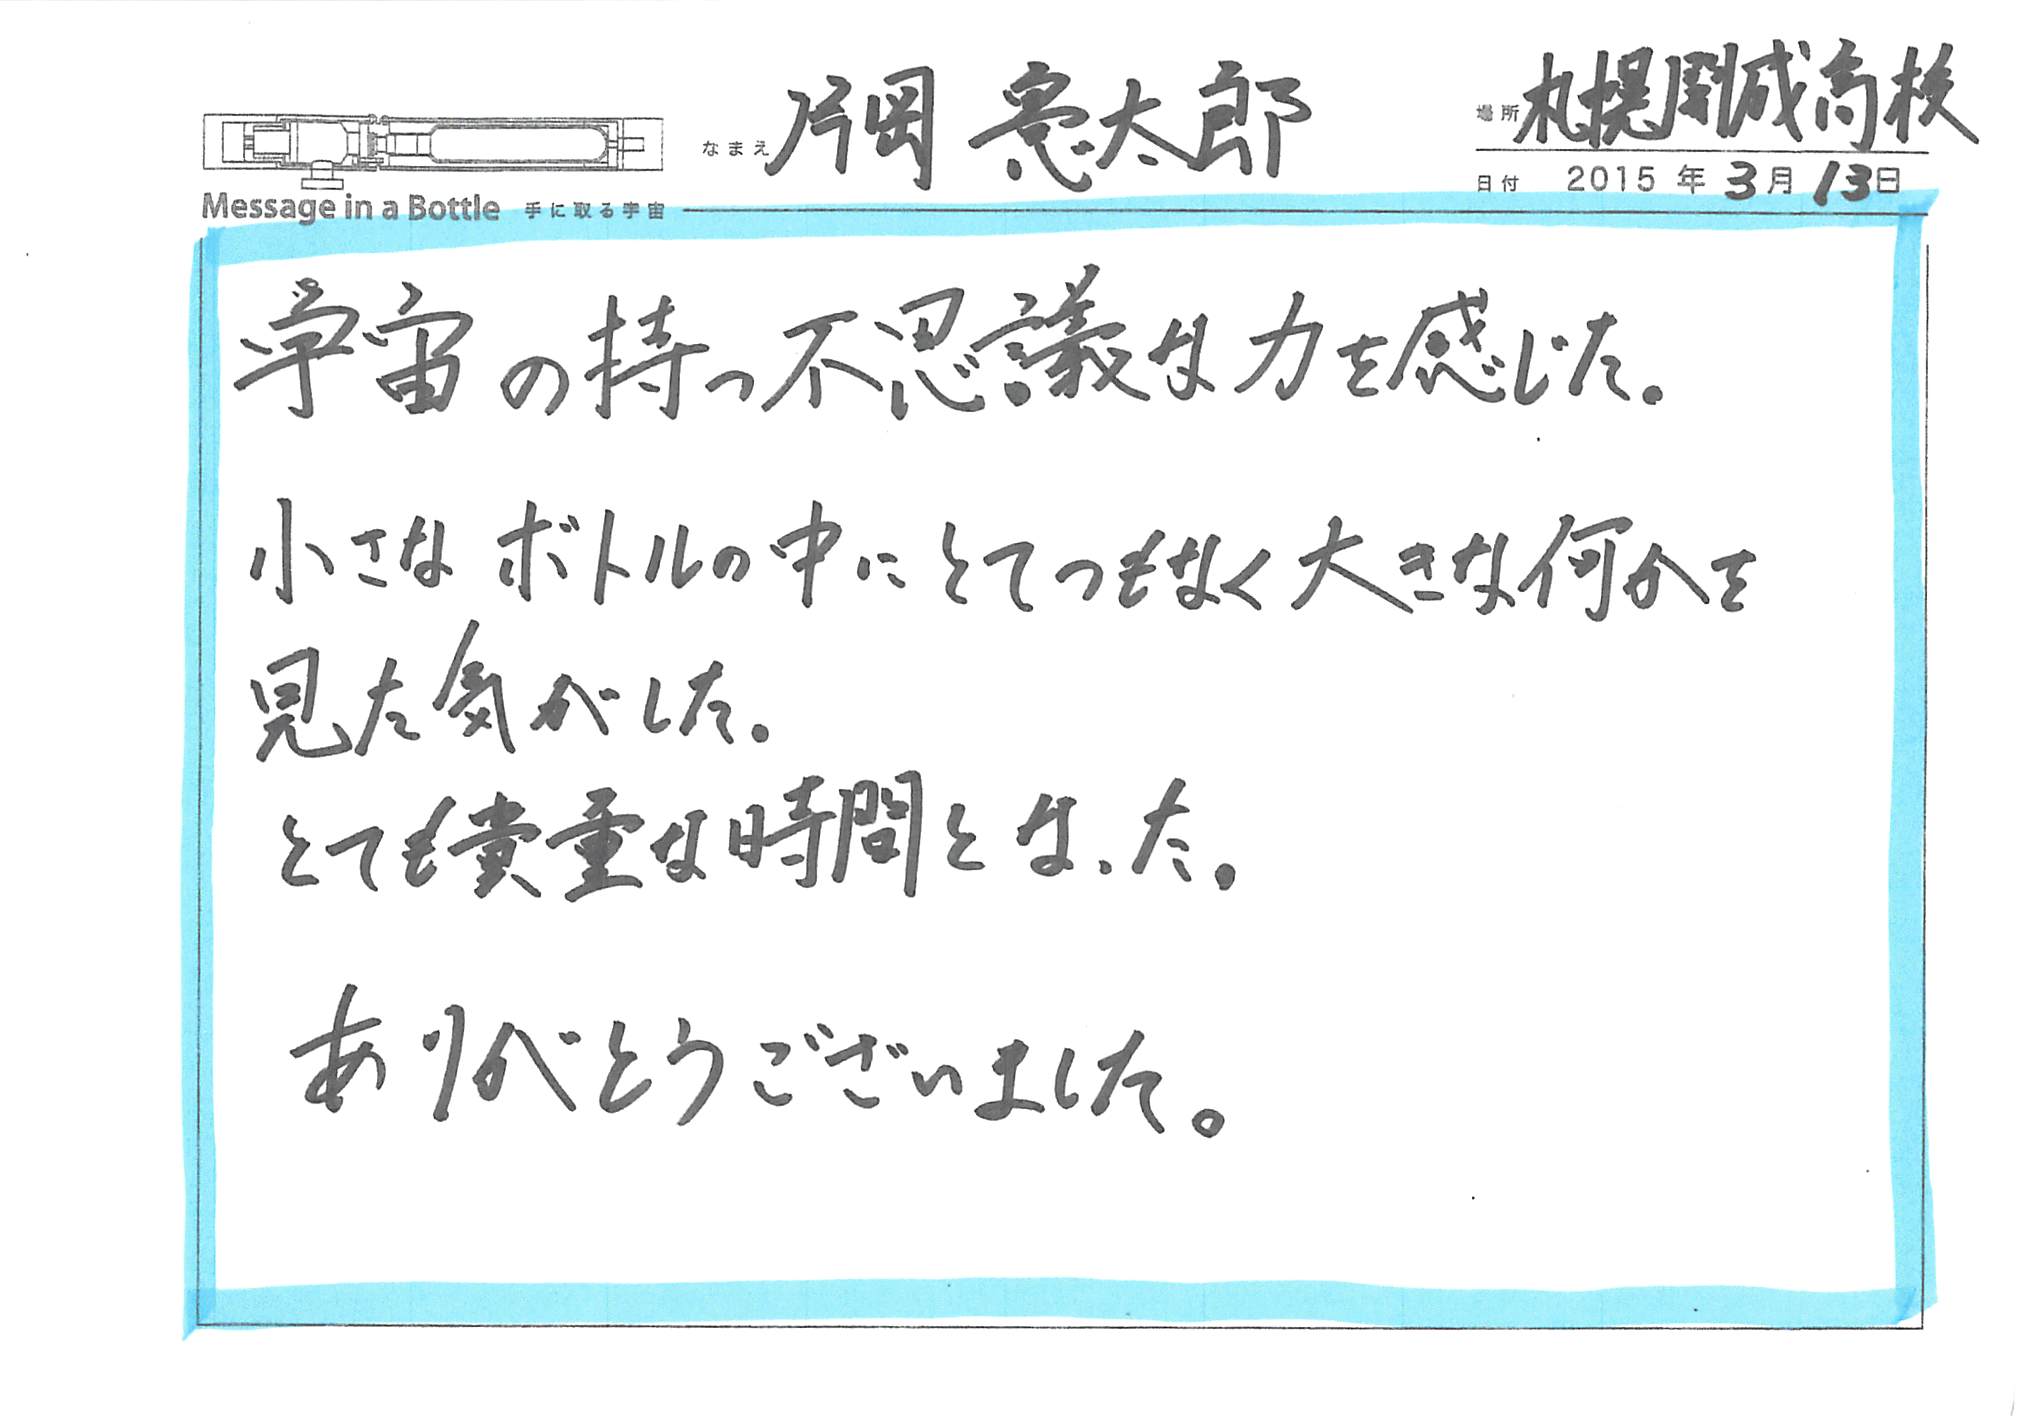 なまえ 片岡 寛太郎
場所 札幌開成高校
日付 2015 年 3 月 13 日
Message in a Bottle 手に取る宇宙
宇宙の持つ不思議な力を感じた。
小さなボトルの中にとてつもなく大きな何かを
見た気がした。
とても貴重な時間となった。
ありがとうございました。